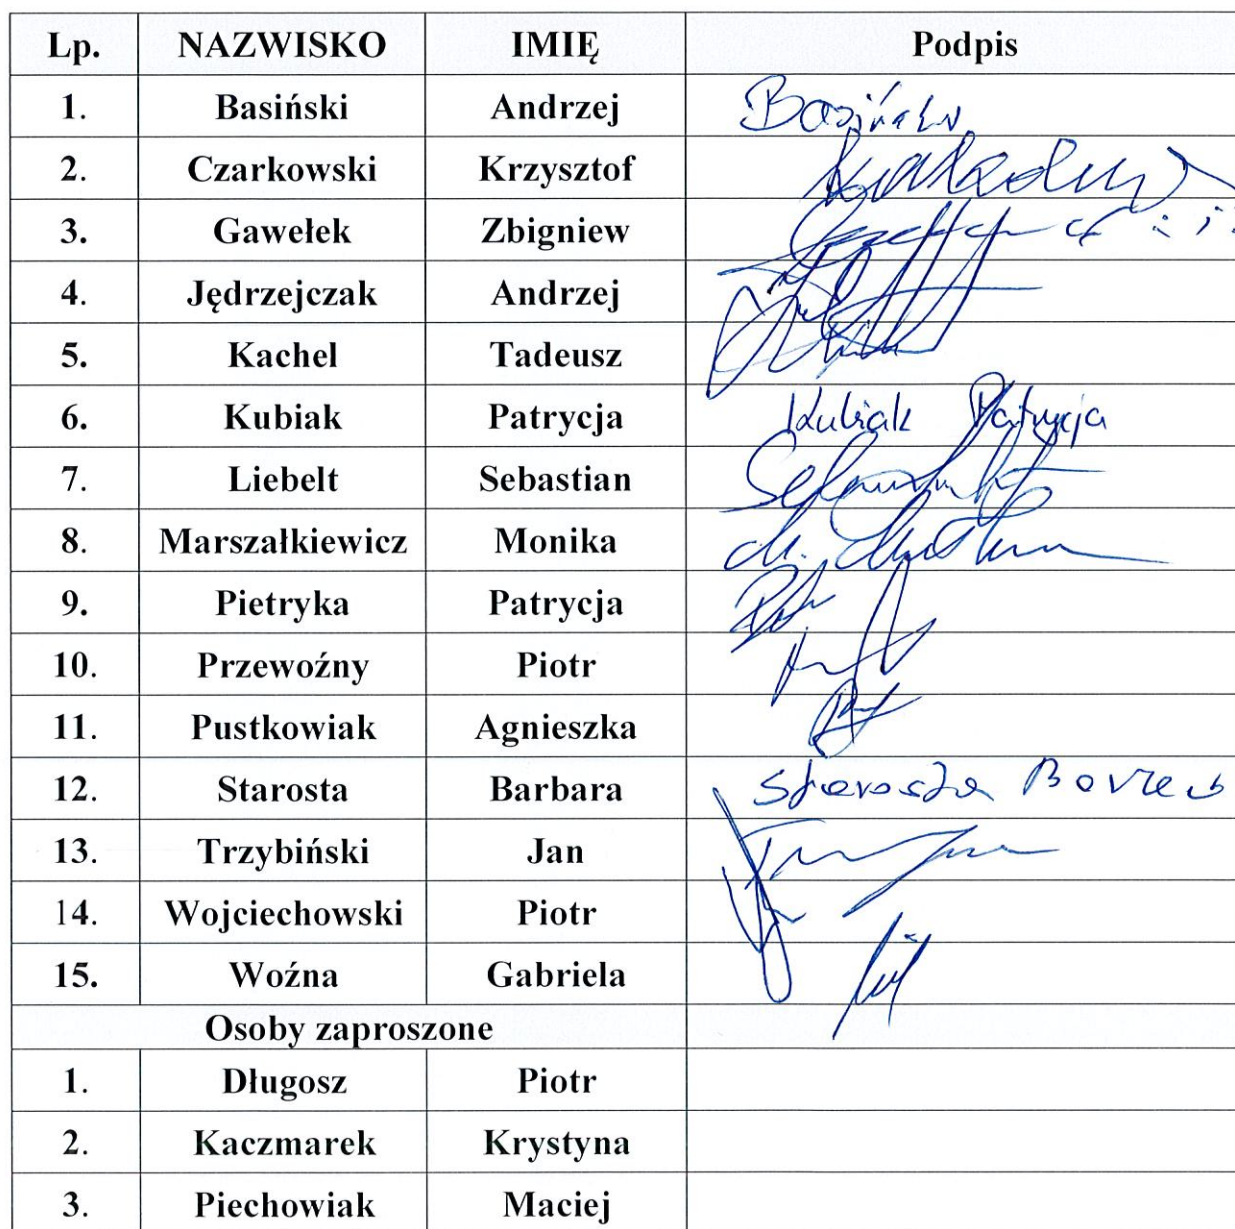 Lp. NAZWISKO IMIĘ Podpis
1. Basiński Andrzej Basiński
2. Czarkowski Krzysztof
3. Gawełek Zbigniew
4. Jędrzejczak Andrzej
5. Kachel Tadeusz
6. Kubiak Patrycja Kubiak Patrycja
7. Liebelt Sebastian
8. Marszałkiewicz Monika
9. Pietryka Patrycja
10. Przewoźny Piotr
11. Pustkowiak Agnieszka
12. Starosta Barbara Starosta
13. Trzybiński Jan
14. Wojciechowski Piotr
15. Woźna Gabriela
Osoby zaproszone
1. Długosz Piotr
2. Kaczmarek Krystyna
3. Piechowiak Maciej